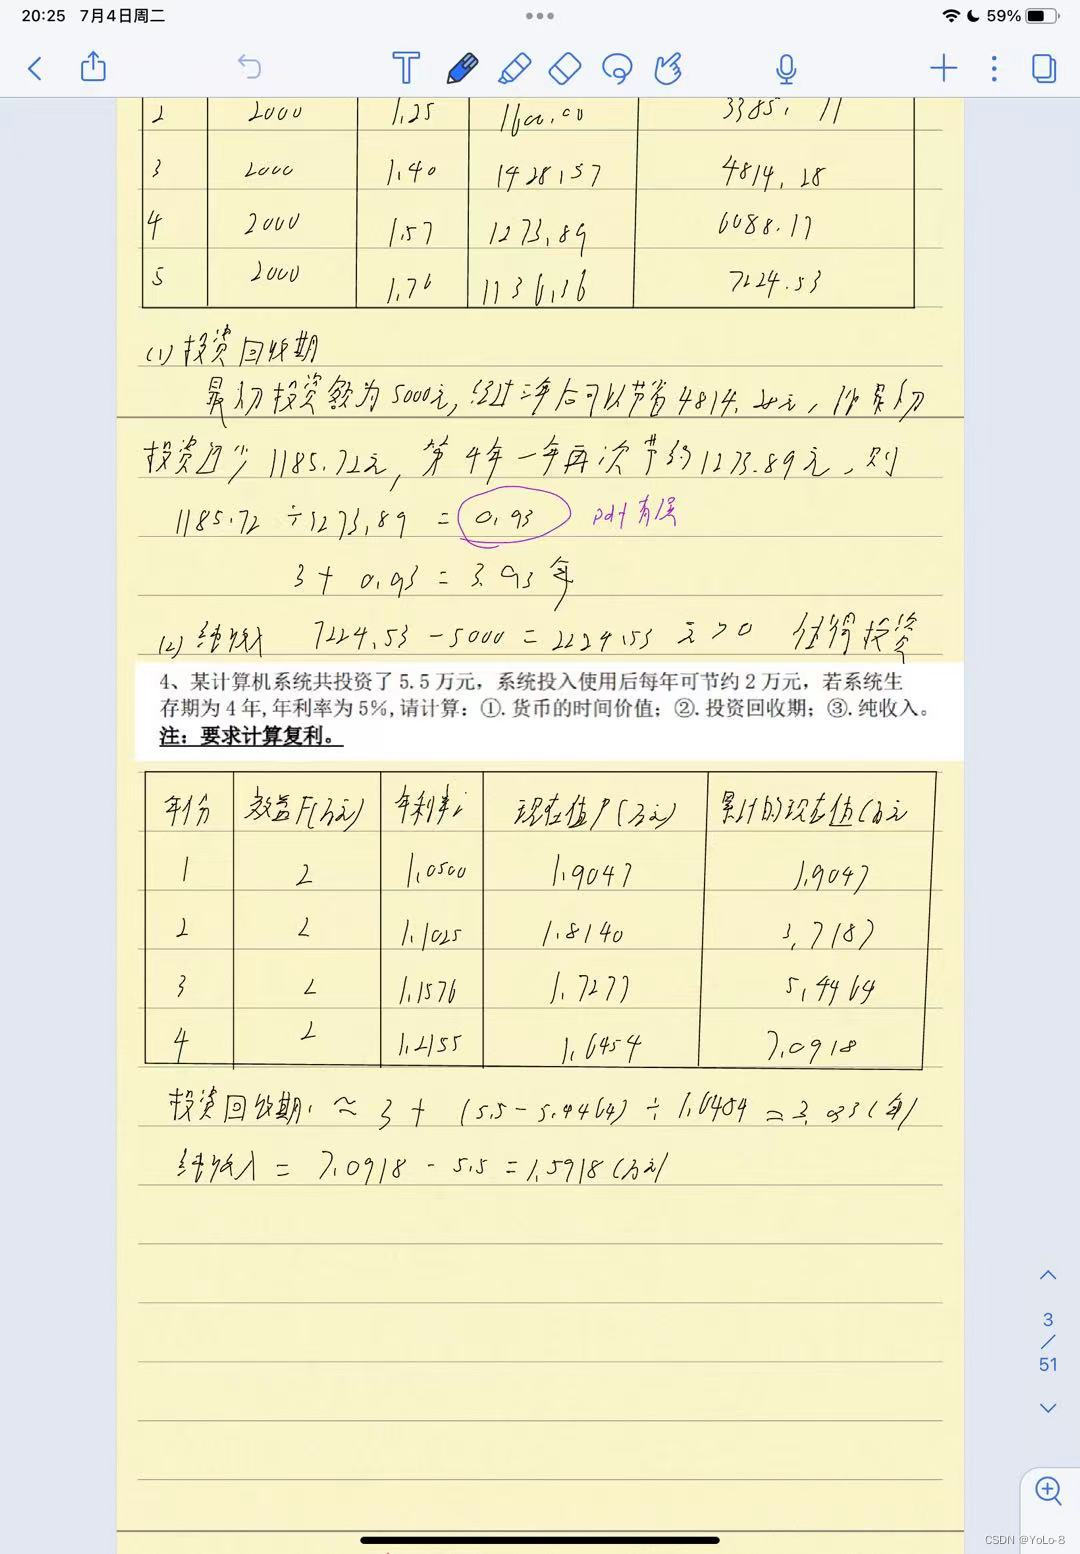 20:25 7月4日周二
59%
2 2000 1.25 1600.00 3385.71
3 2000 1.40 1428.57 4814.28
4 2000 1.57 1273.89 6088.17
5 2000 1.76 1136.36 7224.53
(1) 投资回收期
最初投资额为5000元,经过三年后可以节省4814.28元,比最初
投资还少1185.72元,第4年一年再次节约1273.89元,则
1185.72 ÷1273.89 = 0.93
3 + 0.93 = 3.93 年
(2) 纯收入 7224.53 - 5000 = 2224.53 元 > 0 值得投资
4、某计算机系统共投资了 5.5 万元，系统投入使用后每年可节约 2 万元，若系统生
存期为 4 年,年利率为 5%,请计算：①. 货币的时间价值；②. 投资回收期；③. 纯收入。
注：要求计算复利。
年份 效益F(万元) 年利率i 现在值P(万元) 累计的现在值(万元
1 2 1.0500 1.9047 1.9047
2 2 1.1025 1.8140 3.7187
3 2 1.1576 1.7277 5.4464
4 2 1.2155 1.6454 7.0918
投资回收期: ≈ 3 + (5.5 - 5.4464) ÷ 1.6454 = 3.03 (年)
纯收入 = 7.0918 - 5.5 = 1.5918 (万元)
3
/
51
CSDN @YoLo-8